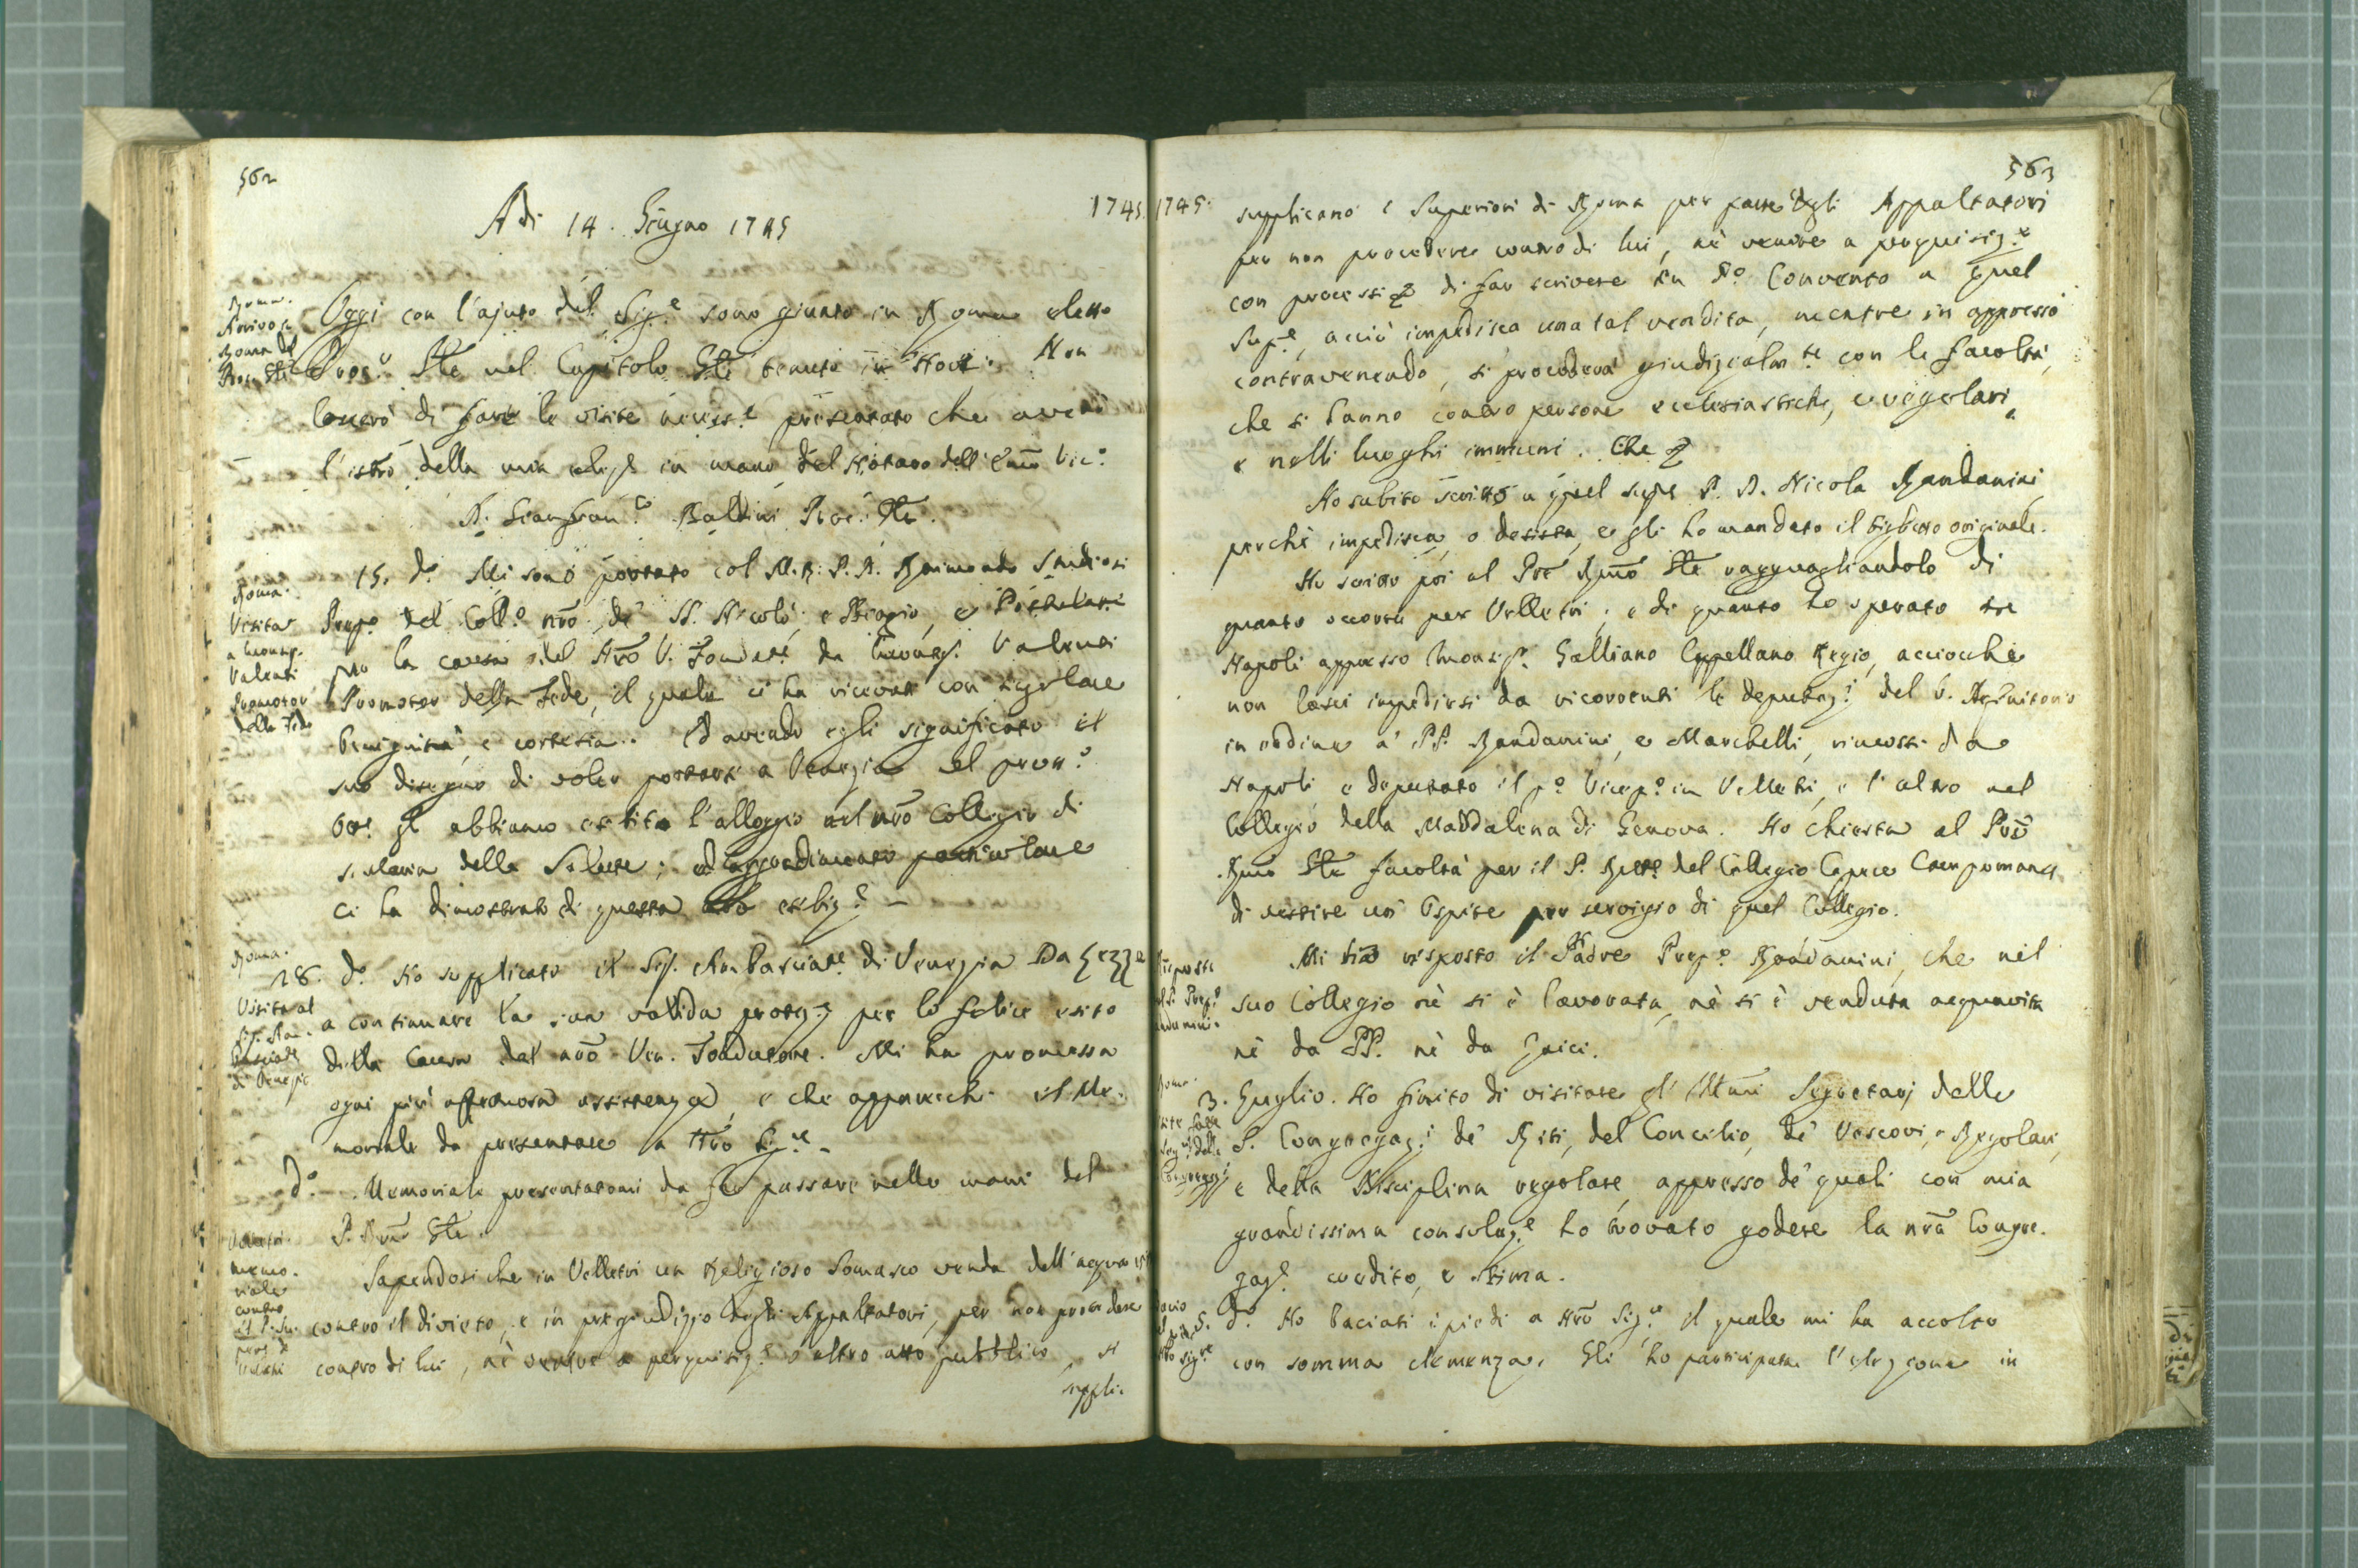 562
1745
A di 14. Giugno 1745
Roma.
Arrivo in
Roma del
Proc. Gle
Oggi con l'ajuto del Sig.e sono giunto in Roma eletto
Proc.r Gle nel Capitolo Gle tenuto in Novi. Non
lascerò di fare le visite necess.e presentato che averò
l'istro della mia elez.e in mano del Notaro dell'Emo Vic.o
D. Gianfran.co Baldini Proc. Gle.
Roma.
Visita
a Monsig.
Valenti
Promotor
della Fede
15. d.o Mi sono portato col M.R. P. D. Raimondo Studiosi
Prep.o del Coll.o nro de' SS. Nicolò, e Biagio, e Postulatore
per la causa del Nro V. Fondat.e da Monsig. Valenti
Promotor della Fede, il quale ci ha ricevuti con singolare
benignità, e cortesia. Ed avendo egli significato il
suo disegno di voler portarsi a Venezia nel pross.o
8bre gl'abbiamo esibito l'alloggio nel nro Collegio di
S. Maria della Salute; ed aggradimento particolare
ci ha dimostrato di questa esibiz.e
Roma.
Visita al
Sig. Am-
basciat.e
di Venezia
18. d.o Ho supplicato il Sig. Ambasciat.e di Venezia Da Lezze
a continuare la sua valida protez.e per lo felice esito
della Causa del nro Ven. Fondatore. Mi ha promessa
ogni più affettuosa assistenza, e che apparecchi il Me-
moriale da presentare a Nro Sig.re
d.o Memoriale presentatomi da far passare nelle mani del
P. Rmo Gle.
Velletri.
Memo-
riale
contro
il P. Su-
per.e di
Velletri
Sapendosi che in Velletri un Religioso Somasco venda dell'acqua vita
contro il divieto, e in pregiudizio degli Appaltatori, per non procedere
contro di lui, nè venire a perquisiz.e o altro atto pubblico, si
suppli-
563
1745.
supplicano i Superiori di Roma per parte degli Appaltatori
per non procedere contro di lui, nè venire a perquisiz.e
con processi di far scrivere in d.o Convento a quel
Sup.e, acciò impedisca una tal vendita, mentre in appresso
contravenendo, si procederà giudizialm.te con le facoltà,
che si danno contro persone ecclesiastiche, e regolari,
e nelli luoghi immuni. Che
Ho subito scritto a quel Supe P. D. Nicola Randanini
perchè impedisca, o desista, e gli ho mandato il biglietto originale.
Ho scritto poi al Pre Rmo Gle ragguagliandolo di
quanto occorre per Velletri; e di quanto ho operato in
Napoli appresso Monsig.r Galliano Cappellano Regio, acciocchè
non lasci impedirsi da ricorrenti le deputaz.i del V. Definitorio
in ordine a' PP. Randanini, e Marchelli, rimossi da
Napoli, e deputato il p.o Vicep.o in Velletri, e l'altro nel
Collegio della Maddalena di Genova. Ho chiesta al Pre
Rmo Gle facoltà per il P. Rett.e del Collegio Capece
di vestire un Ospite per servigio di quel Collegio.
Risposta
del P. Prep.o
Randanini.
Mi ha risposto il Padre Prep.o Randanini, che nel
suo Collegio nè si è lavorata, nè si è venduta acquavita
nè da PP. nè da Laici.
Roma.
Visite fatte
a' Seg.rj delle
Congregaz.i
3. Luglio. Ho finito di visitare gl'Illmi Segretarj delle
S. Congregaz.i de' Riti, del Concilio, de' Vescovi, e Regolari,
e della Disciplina regolare, appresso de' quali con mia
grandissima consolaz.e ho trovato godere la nra Congre-
gaz.e credito, e stima.
Bacio
Nro Sig.re
5. d.o Ho baciati i piedi a Nro Sig.re il quale mi ha accolto
con somma clemenza. Gli ho participata l'elezione in